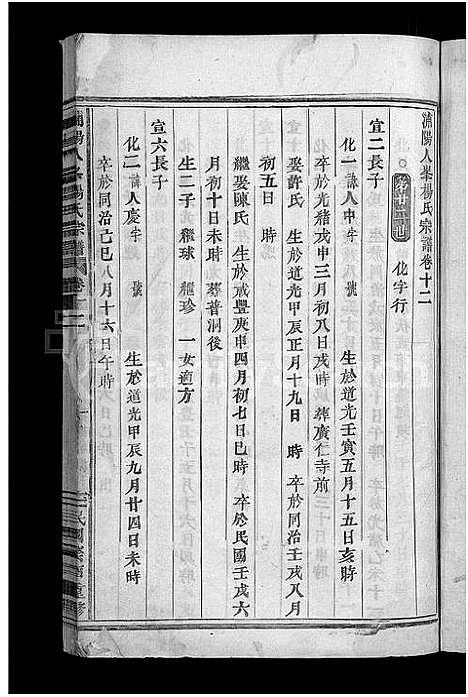 浦陽人峯楊氏宗譜卷十二
第廿三世 化字行
宣二長子
化一 諱人申 字 號 生於道光壬寅五月十五日亥時
卒於光緒戊申三月初八日戌時 葬廣仁寺前
娶許氏 生於道光甲辰正月十九日 時 卒於同治壬戌八月
初五日 時
繼娶陳氏 生於咸豐庚申四月初七日巳時 卒於民國壬戌六
月初十日未時 葬普洞後
生二子 繼球 繼珍 一女適方
宣六長子
化二 諱人慶 字 號 生於道光甲辰九月廿四日未時
卒於同治己巳八月十六日午時